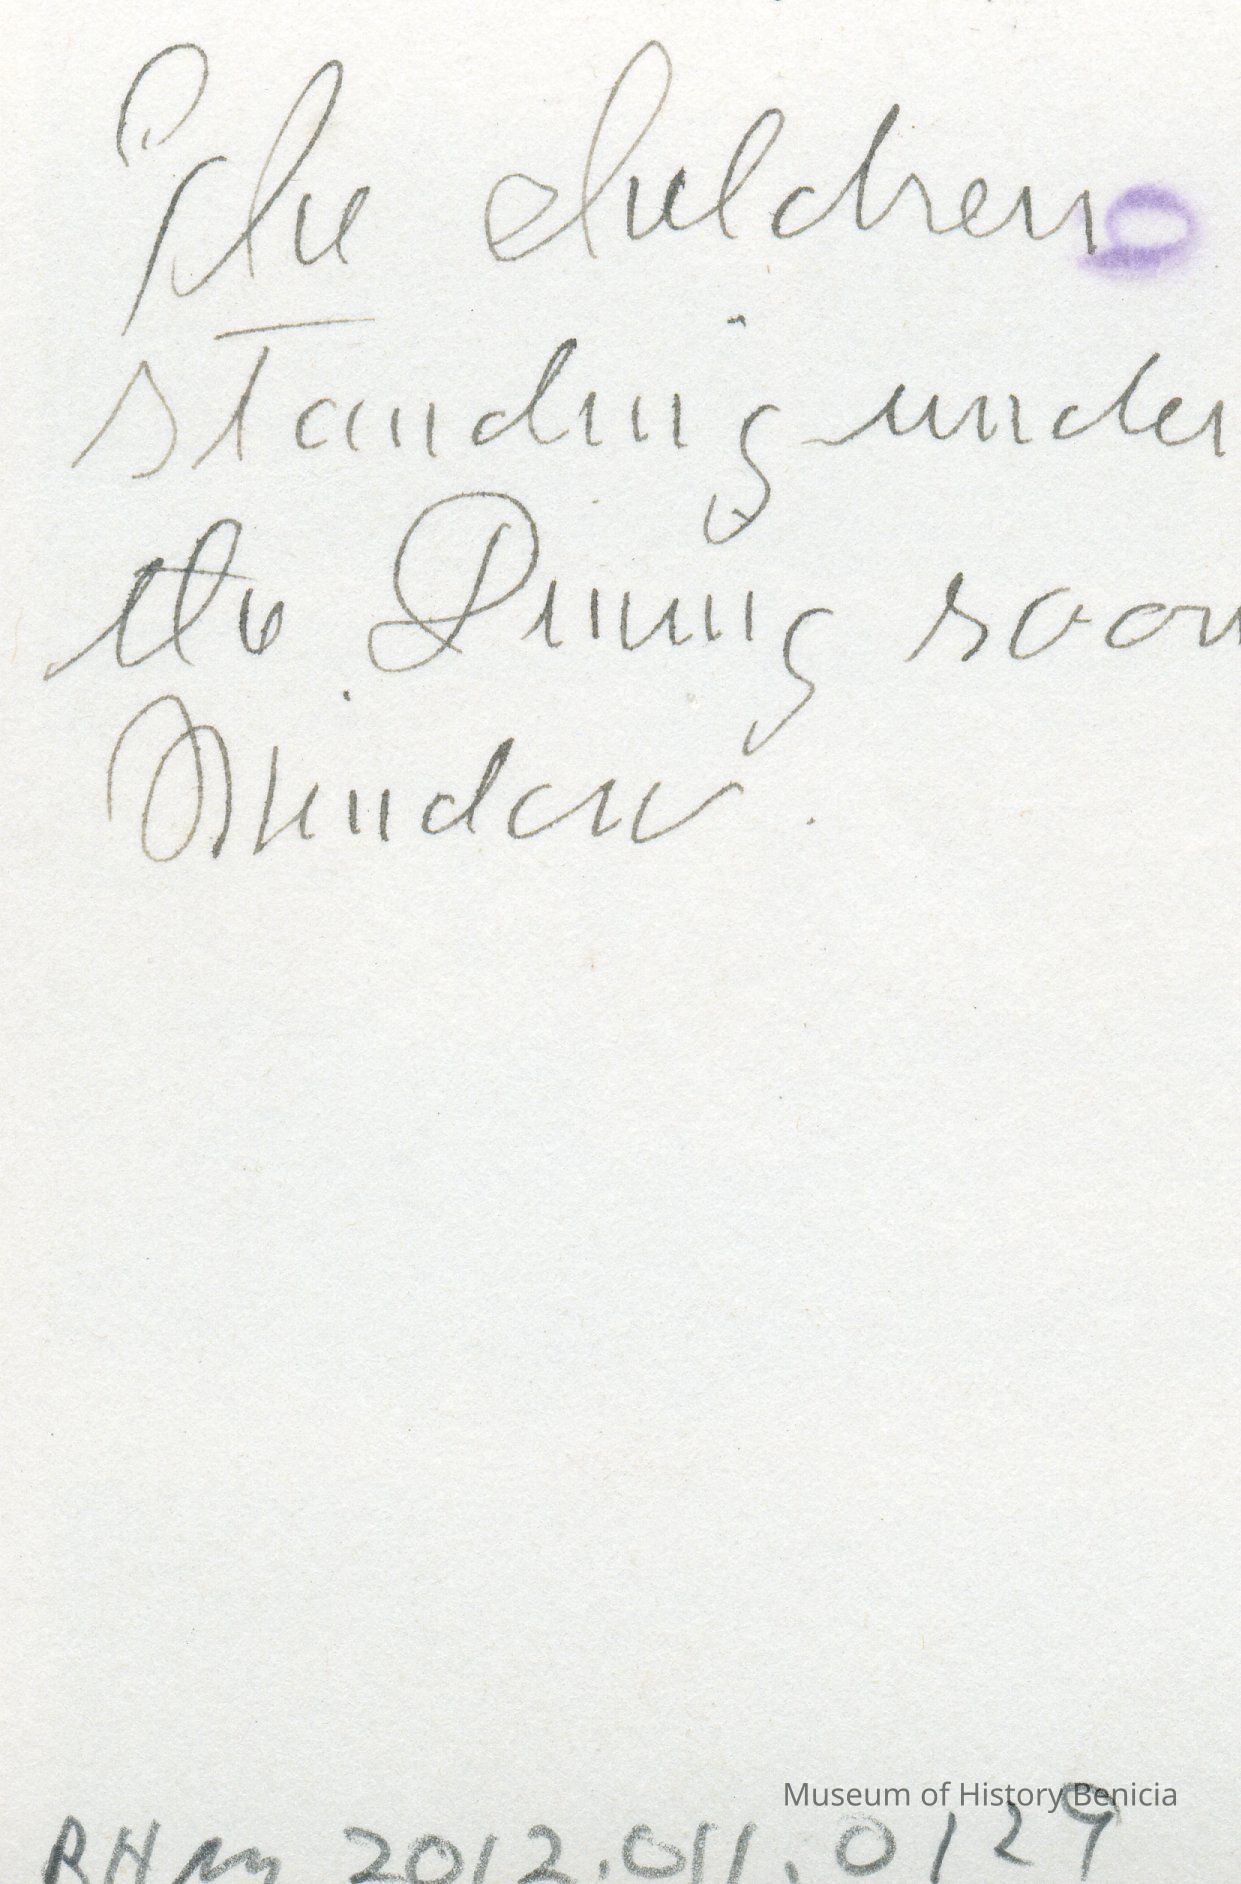 The children
standing under
the Dining room
Window.
Museum of History Benicia
BHM 2012.011.0129